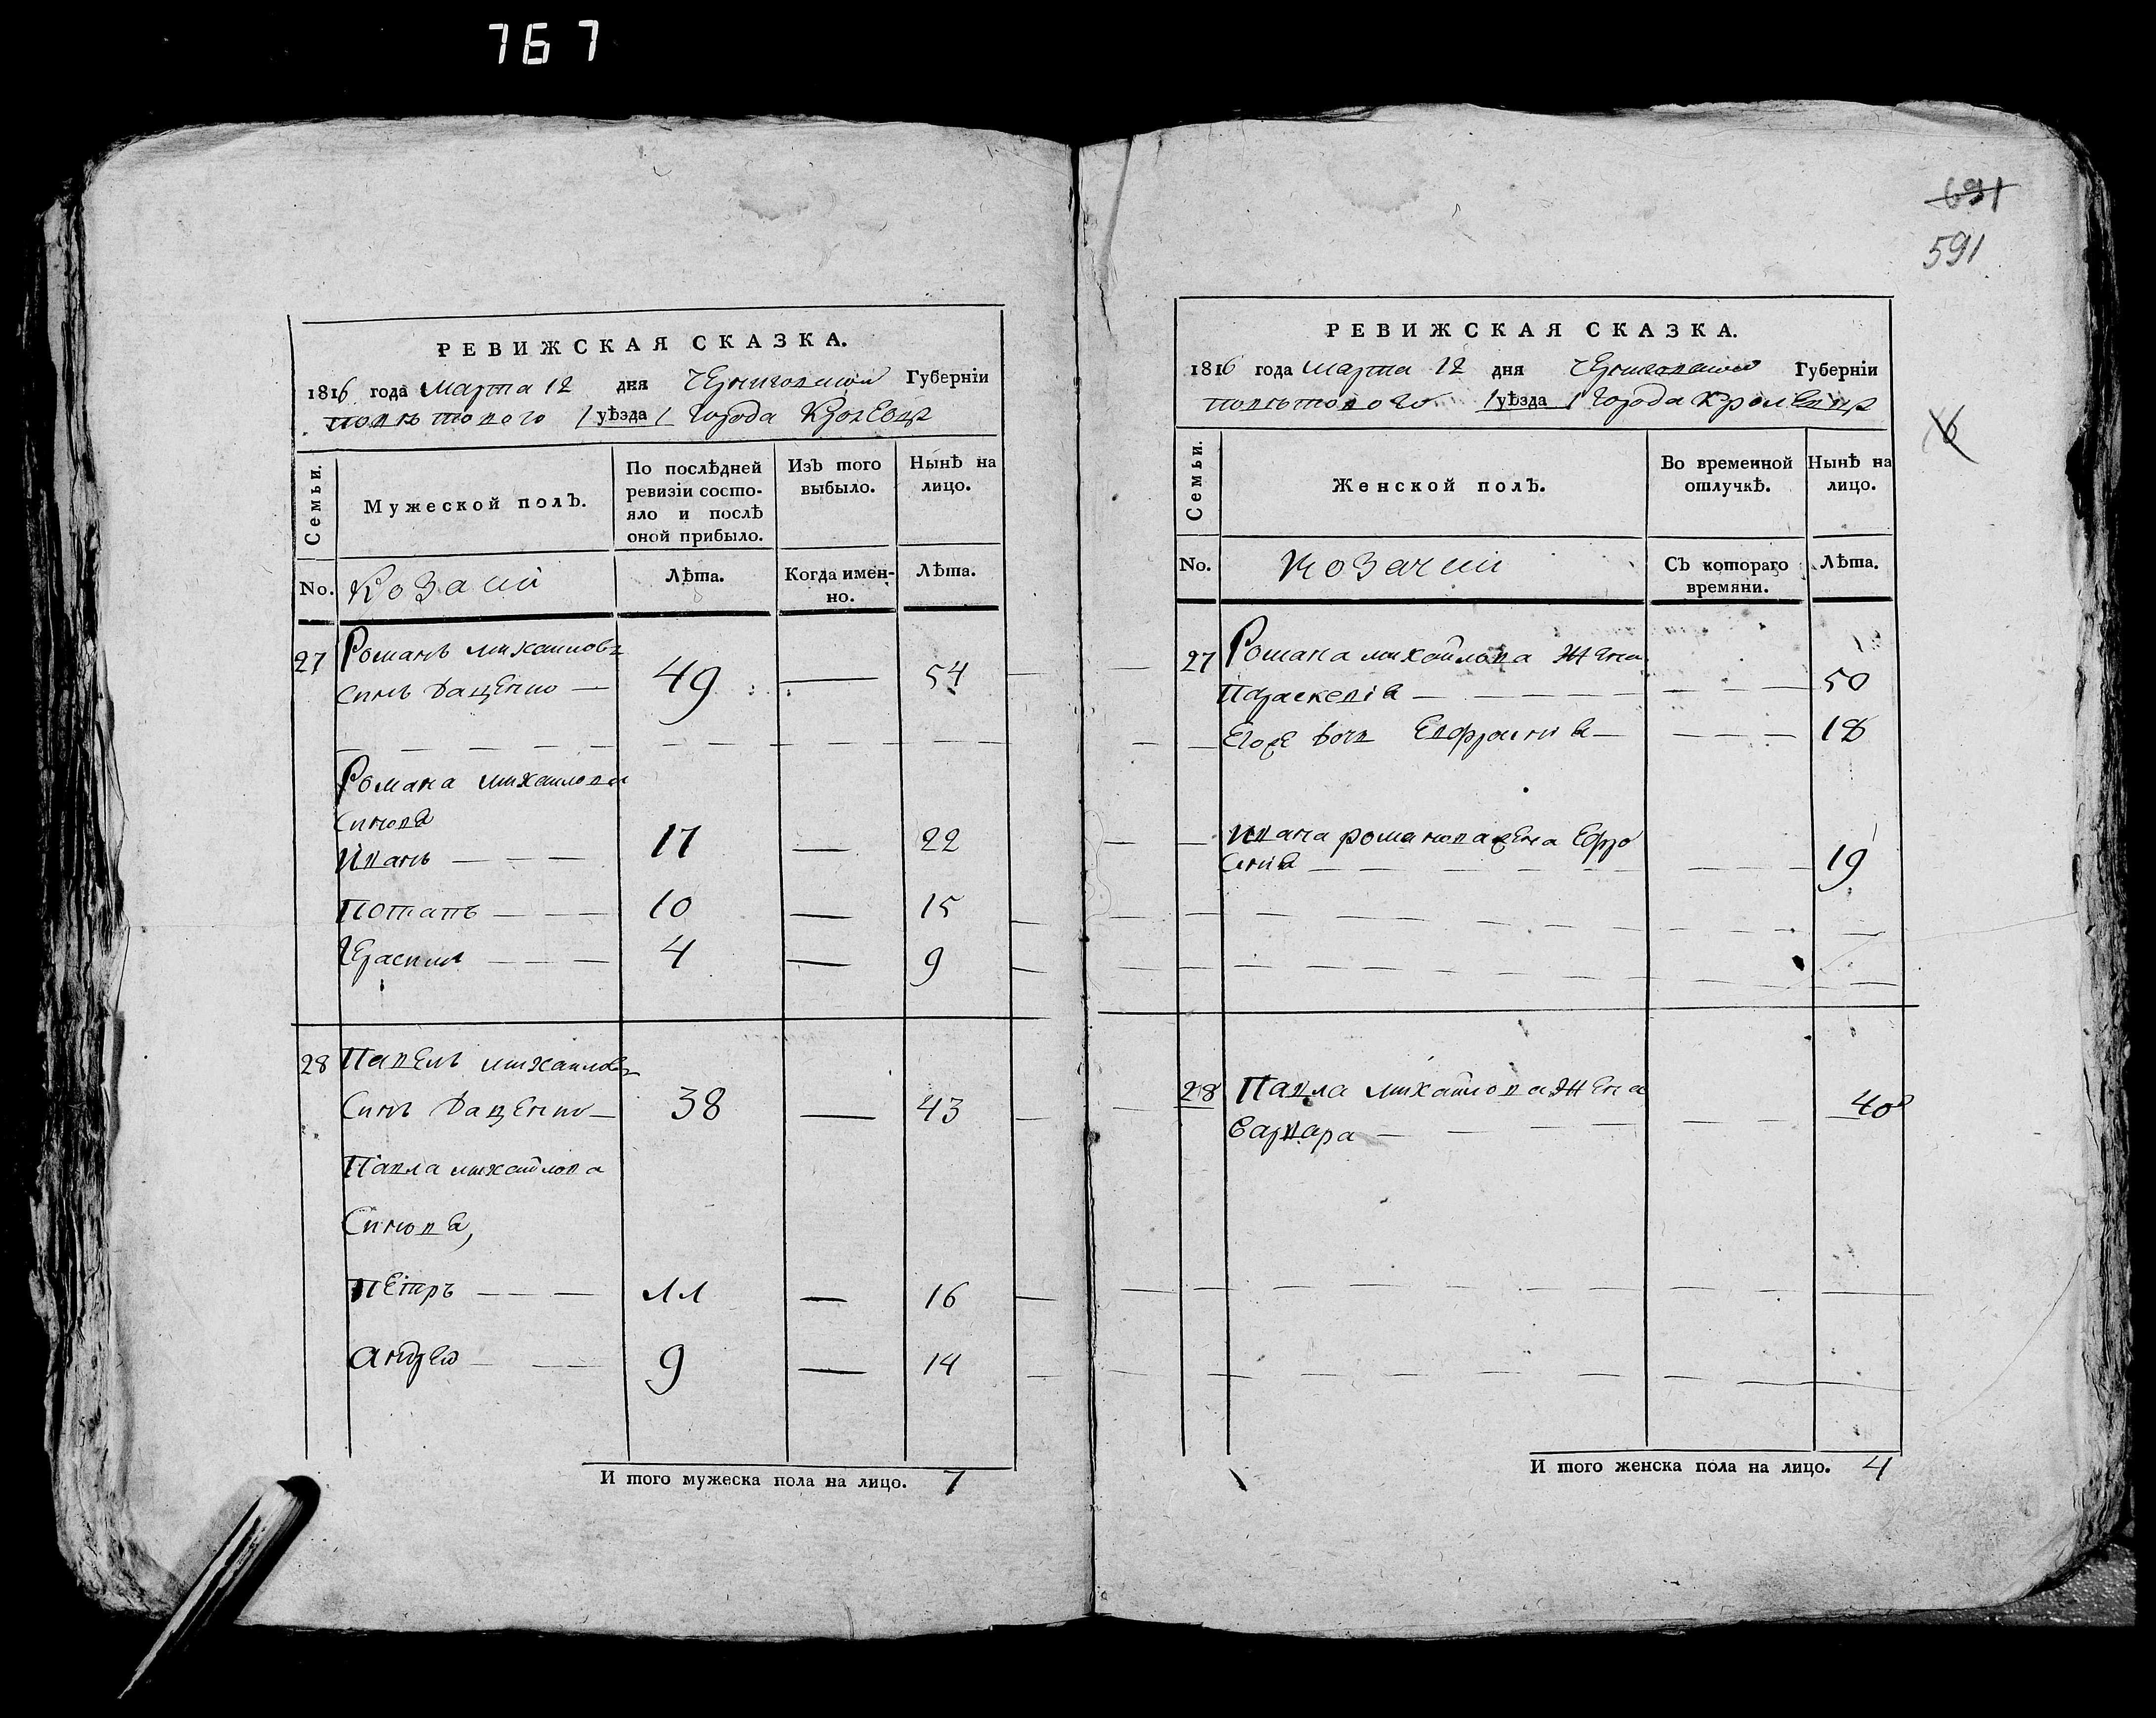 767
РЕВИЖСКАЯ СКАЗКА.
1816 года марта 12 дня Черниговской Губерніи
повѣтового /уѣзда/ города Кролевца
Семьи.
Мужеской полъ.
По послѣдней ревизіи состояло и послѣ оной прибыло.
Изъ того выбыло.
Нынѣ на лицо.
No.
Козаки
Лѣта.
Когда именно.
Лѣта.
27 Романъ михаиловъ
Синъ Даценко — 49 — 54
Романа михаилова
Синова
Иванъ — — — 17 — 22
Потапъ — — — 10 — 15
Герасимъ — — — 4 — 9
28 Павелъ михаиловъ
Синъ Даценко — 38 — 43
Павла михайлова
Синова,
Петръ — — — 11 — 16
Андрей — — 9 — 14
И того мужеска пола на лицо. 7
691
591
РЕВИЖСКАЯ СКАЗКА.
1816 года марта 12 дня Черниговской Губерніи
повѣтового /уѣзда/ города Кролевца
Семьи.
Женской полъ.
Во временной отлучкѣ.
Нынѣ на лицо.
No.
Козачки
Съ котораго времяни.
Лѣта.
27 Романа михайлова Жена
Параскевіа — — — 50
Его же дочь Евфросиніа — — — 18
Ивана романова жена Ефро
синіа — — — 19
28 Павла михайлова Жена 40
Варвара — — —
И того женска пола на лицо. 4